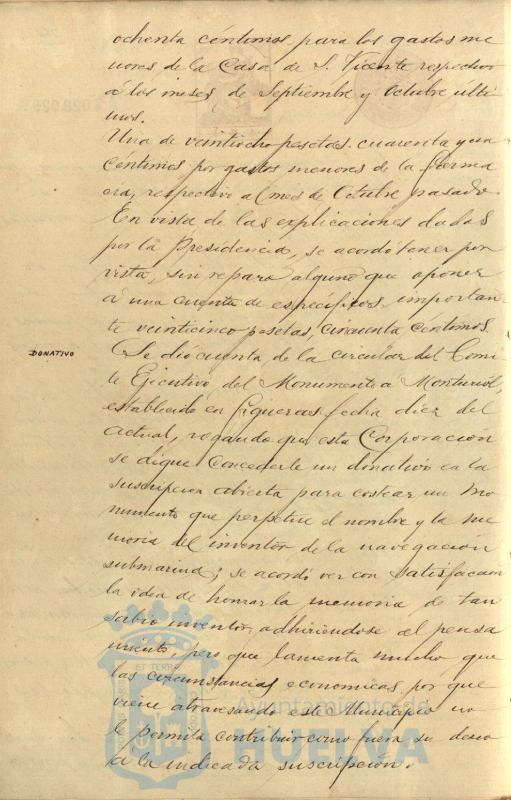 ochenta céntimos para los gastos me
nores de la Casa de S. Vicente respectivo
á los meses de Septiembre y Octubre ulti
mos.
Una de veintiocho pesetas cuarenta y un
céntimos por gastos menores de la Farma
cia, respectivo al mes de Octubre pasado.
En vista de las esplicaciones dadas
por la Presidencia, se acordó tener por
vista, sin reparo alguno que oponer
á una cuenta de específicos, importan
te veinticinco pesetas, cincuenta céntimos.
DONATIVO
Se dió cuenta de la circular del Comi
te Ejecutivo del Monumento á Monturiol,
establecido en Figueras fecha diez del
actual, rogando que esta Corporación
se digne concederle un donativo en la
suscripcion abierta para costear un mo
numento que perpetue el nombre y la me
moria del inventor de la navegación
submarina; se acordó ver con satisfaccion
la idea de honrar la memoria de tan
sabio inventor, adhiriendose al pensa
miento, pero que lamenta mucho que
las circunstancias economicas por que
viene atravesando este Municipio no
le permita contribuir como fuera su deseo
á la indicada suscripción.
Ayuntamiento de
HUELVA